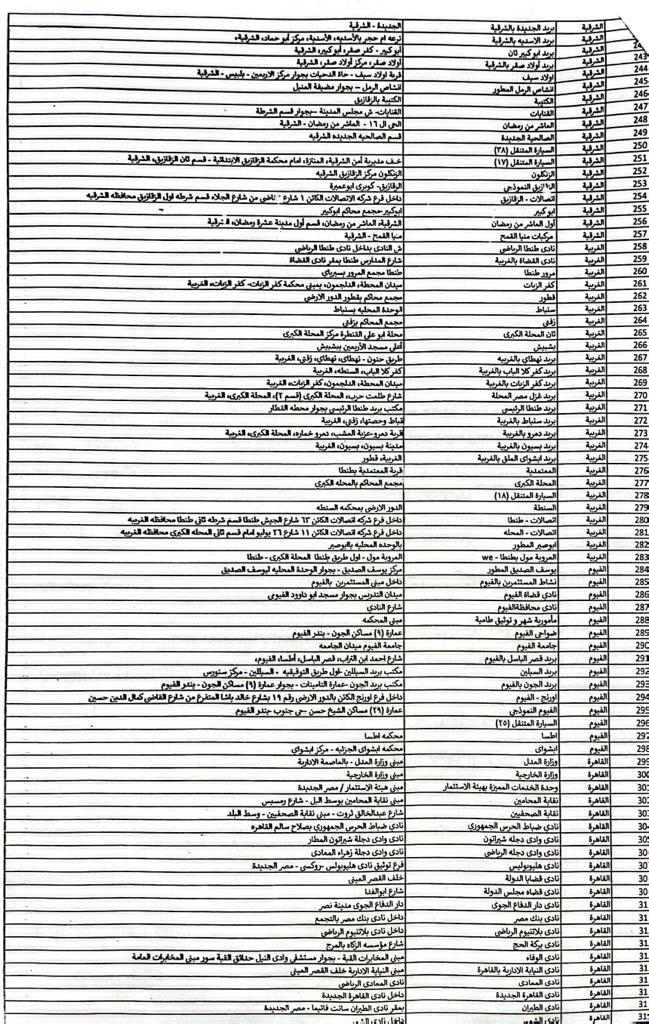 الشرقية بريد الجديدة بالشرقية الجديدة - الشرقية
الشرقية بريد الاسديه بالشرقية ترعه ام حجر بالأسديه، الأسدية، مركز أبو حماد، الشرقية،
243 الشرقية بريد ابو كبير ثان أبو كبير - كفر صقر، أبو كبير، الشرقية
244 الشرقية بريد أولاد صقر بالشرقية أولاد صقر، مركز أولاد صقر، الشرقية
245 الشرقية اولاد سيف قرية اولاد سيف - خاة الدحيات بجوار مركز الاربعين - بلبيس - الشرقية
246 الشرقية انشاص الرمل المطور انشاص الرمل - بجوار مضيفة المنيل
247 الشرقية الكتبية الكتبية بالزقازيق
248 الشرقية القنايات القنايات- ش مجلس المدينة -بجوار قسم الشرطة
249 الشرقية العاشر من رمضان الحى ال ١٦ - العاشر من رمضان - الشرقية
250 الشرقية الصالحية الجديدة قسم الصالحيه الجديده الشرقيه
251 الشرقية السيارة المتنقل (٣٨)
252 الشرقية السيارة المتنقل (١٧) خلف مديرية أمن الشرقية، المنتزة، امام محكمة الزقازيق الابتدائية - قسم ثان الزقازيق، الشرقية
253 الشرقية الزنكلون الزنكلون مركز الزقازيق الشرقيه
254 الشرقية الزقازيق النموذجي الزقازيق- كوبرى ابوعميرة
255 الشرقية اتصالات - الزقازيق داخل فرع شركه الاتصالات الكائن ١ شارع ناضي من شارع الجلاء قسم شرطه اول الزقازيق محافظه الشرقيه
256 الشرقية ابو كبير ابوكبير-مجمع محاكم ابوكبير
257 الشرقية أول العاشر من رمضان الشرقية، العاشر من رمضان، قسم أول مدينة عشرة رمضان، الشرقية
الشرقية مركبات منيا القمح منيا القمح - الشرقية
258 الغربية نادى طنطا الرياضي ش النادى بداخل نادى طنطا الرياضي
259 الغربية نادى القضاة بالغربية شارع المدارس طنطا بمقر نادى القضاة
260 الغربية مرور طنطا طنطا مجمع المرور بسبرباى
261 الغربية كفر الزيات ميدان المحطة، الدلجمون، بمبنى محكمة كفر الزيات- كفر الزيات، الغربية
262 الغربية قطور مجمع محاكم بقطور الدور الارضي
263 الغربية سنباط الوحدة المحليه بسنباط
264 الغربية زفتى مجمع المحاكم بزفتى
265 الغربية ثان المحلة الكبرى محلة ابو على القنطرة مركز المحلة الكبرى
266 الغربية بشبيش أعلى مسجد الأربعين ببشبيش
267 الغربية بريد نهطاي بالغربيه طريق حنون - نهطاي، نهطاي، زفتى، الغربية
268 الغربية بريد كفر كلا الباب بالغربية كفر كلا الباب، السنطه، الغربية
269 الغربية بريد كفر الزيات بالغربية ميدان المحطة، الدلجمون، كفر الزيات، الغربية
270 الغربية بريد غزل مصر المحلة شارع طلعت حرب، المحلة الكبرى (قسم ٢)، المحلة الكبرى، الغربية
271 الغربية بريد طنطا الرئيسي مكتب بريد طنطا الرئيسى بجوار محطه القطار
272 الغربية بريد سنباط بالغربية قباط وحصتها، زفتى، الغربية
273 الغربية بريد دمرو بالغربية قرية دمرو-عزبة المشب، دمرو خماره، المحلة الكبرى، الغربية
274 الغربية بريد بسيون بالغربية مدينة بسيون، بسيون، الغربية
275 الغربية بريد ابشواى الملق بالغربية الغربية، قطور
276 الغربية المعتمدية قرية المعتمدية بطنطا
277 الغربية المحلة الكبرى مجمع المحاكم بالمحله الكبرى
278 الغربية السيارة المتنقل (١٨)
279 الغربية السنطة الدور الارضى بمحكمه السنطه
280 الغربية اتصالات - طنطا داخل فرع شركه اتصالات الكائن ٦٣ شارع الجيش طنطا قسم شرطه ثانى طنطا محافظه الغربيه
281 الغربية اتصالات - المحله داخل فرع شركه اتصالات الكائن ١١ شارع ٢٦ يوليو امام قسم ثانى المحله الكبرى محافظه الغربيه
282 الغربية ابوصير المطور بالوحده المحليه بابوصير
283 الغربية العروبة مول بطنطا - we العروبة مول - اول طريق طنطا المحلة الكبرى - طنطا
284 الفيوم يوسف الصديق المطور مركز يوسف الصديق - بجوار الوحدة المحليه ليوسف الصديق
285 الفيوم نشاط المستثمرين بالفيوم داخل مبنى المستثمرين بالفيوم
286 الفيوم نادى قضاة الفيوم ميدان التدريس بجوار مسجد ابو داوود الفيومى
287 الفيوم نادى محافظةالفيوم شارع النادي
288 الفيوم مأمورية شهر و توثيق طامية مبنى المحكمه
289 الفيوم ضواحى الفيوم عمارة (٩) مساكن الجون - بندر الفيوم
290 الفيوم جامعة الفيوم جامعة الفيوم ميدان الجامعه
291 الفيوم بريد قصر الباسل بالفيوم شارع احمد ابن التراب، قصر الباسل، أطسا، الفيوم،
292 الفيوم بريد السيلين مكتب بريد السيلين -اول طريق التوفيقيه - السيلين - مركز سنورس
293 الفيوم بريد الجون بالفيوم مكتب بريد الجون -عمارة التامينات - بجوار عمارة (٩) مساكن الجون - بندر الفيوم
294 الفيوم اورنج - الفيوم داخل فرع اورنج الكائن بالدور الارضي رقم ١٩ بشارع خالد باشا المتفرع من شارع القاضي كمال الدين حسين
295 الفيوم الفيوم النموذجي عمارة (٢٩) مساكن الشيخ حسن -حى جنوب -بندر الفيوم
296 الفيوم السيارة المتنقل (٢٥)
297 الفيوم اطسا محكمه اطسا
298 الفيوم ابشواى محكمه ابشواى الجزئيه - مركز ابشواى
299 القاهرة وزارة العدل مبنى وزارة العدل - بالعاصمة الادارية
300 القاهرة وزارة الخارجية مبنى وزارة الخارجية
301 القاهرة وحدة الخدمات المميزة بهيئة الاستثمار مبنى هيئة الاستثمار / مصر الجديدة
302 القاهرة نقابة المحامين مبنى نقابة المحامين بوسط البلد - شارع رمسيس
303 القاهرة نقابة الصحفيين شارع عبدالخالق ثروت - مبنى نقابة الصحفيين - وسط البلد
304 القاهرة نادى ضباط الحرس الجمهوري نادى ضباط الحرس الجمهوري بصلاح سالم القاهره
305 القاهرة نادى وادى دجله شيراتون نادى وادى دجلة شيراتون المطار
30 القاهرة نادى وادى دجله الرياضي نادى وادى دجلة زهراء المعادى
30 القاهرة نادى هليوبوليس فرع توثيق نادى هليوبولس -روكسى - مصر الجديدة
30 القاهرة نادى قضايا الدولة خلف القصر العينى
30 القاهرة نادى قضاه مجلس الدولة شارع ابوالفدا
31 القاهرة نادى دار الدفاع الجوى دار الدفاع الجوى مدينة نصر
31 القاهرة نادى بنك مصر داخل نادى بنك مصر بالتجمع
31 القاهرة نادى بلاتنيوم الرياضي داخل نادى بلاتنيوم الرياضي
31 القاهرة نادى بركة الحج شارع مؤسسه الزكاه بالمرج
31 القاهرة نادى الوفاء مبنى المخابرات القبة - بجوار مستشفى وادى النيل حدائق القبة سور مبنى المخابرات العامة
31 القاهرة نادى النيابة الادارية بالقاهرة مبنى النيابة الادارية خلف القصر العينى
31 القاهرة نادى المعادى نادى المعادى الرياضى
31 القاهرة نادى القاهرة الجديدة داخل نادى القاهرة الجديدة
31 القاهرة نادى الطيران بمقر نادى الطيران سانت فاتيما - مصر الجديدة
31 القاهرة نادى داخل نادى